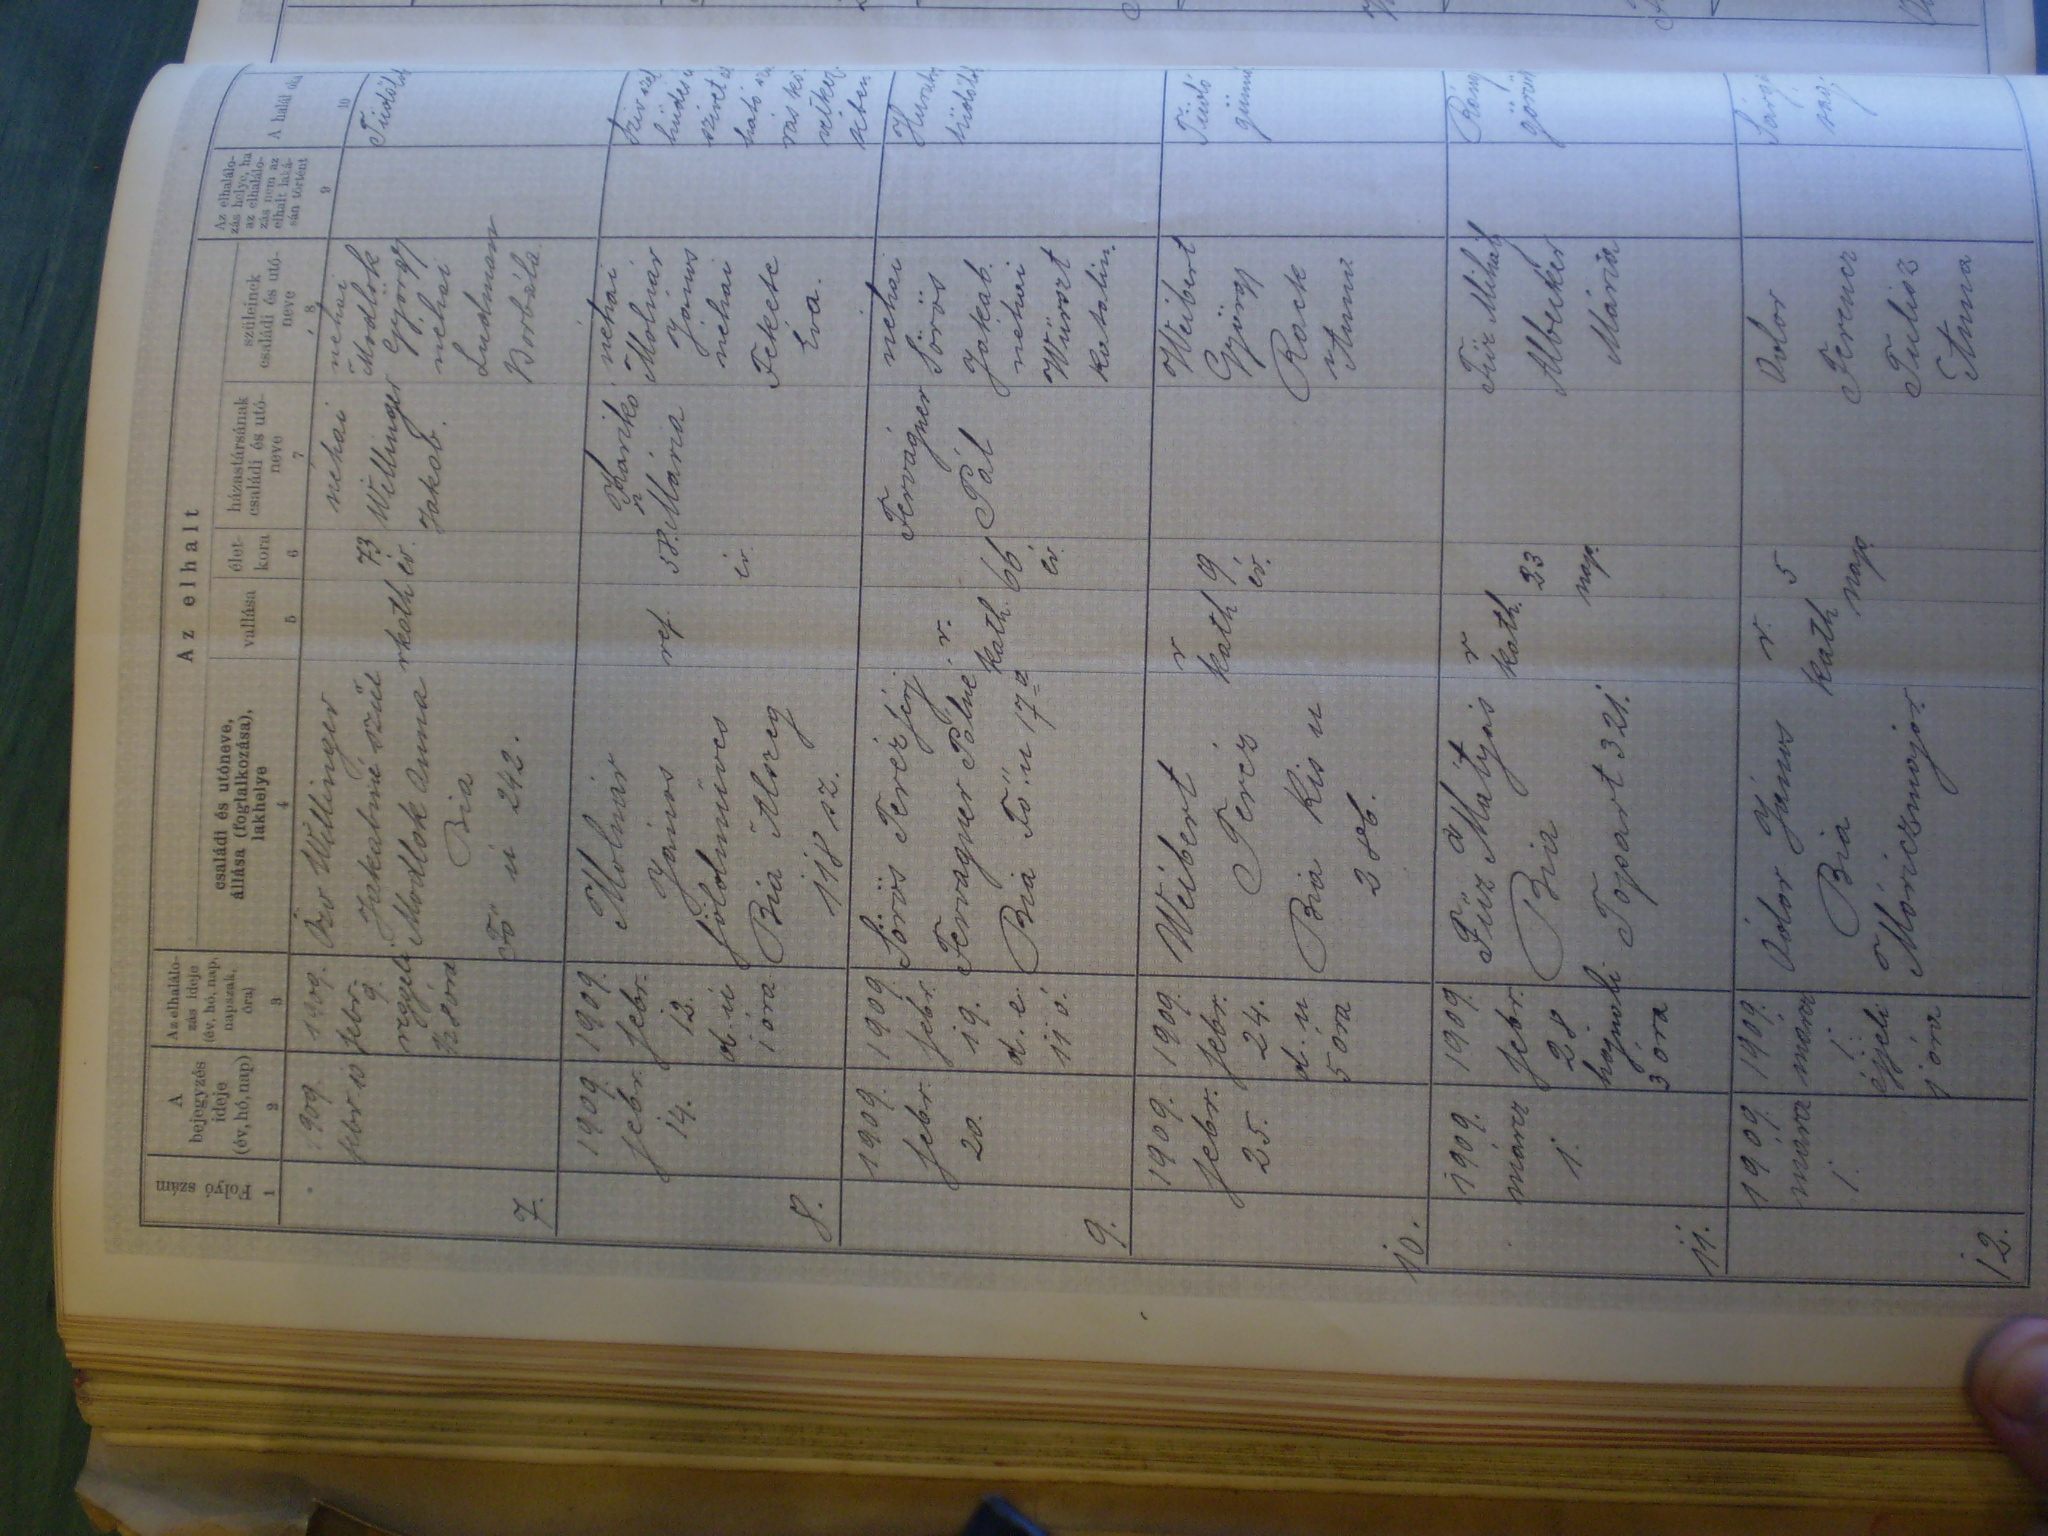 Az elhalt
Folyó szám
A bejegyzés ideje (év, hó, nap)
Az elhalálo-
zás ideje
(év, hó, nap,
napszak,
óra)
családi és utóneve,
állása (foglalkozása),
lakhelye
vallása
élet-
kora
házastársának
családi és utó-
neve
szüleinek
családi és utó-
neve
Az elhalálo-
zás helye, ha
az elhalálo-
zás nem az
elhalt laká-
sán történt
A halál
1 2 3 4 5 6 7 8 9 10
7.
1909.
febr 10
1909.
febr.
9.
reggeli
1/2 8 óra
Özv Willinger
Jakabné szül
Modlok Anna
Bia
Fő u 242.
rkath
73
év.
néhai
Willinger
Jakab.
néhai
Modlok
György
néhai
Ludmann
Borbála
8.
1909.
febr.
14.
1909.
febr.
12.
d. u
1 óra
Molnár
János
földmüves
Bia Alszeg
118 sz.
ref.
58.
év
Mária
néhai
Molnár
János
néhai
Fekete
Éva.
9.
1909.
febr.
20.
1909
febr.
19.
d. e.
11 ó.
Sörös Teréz férj
Fervagner Pálné
Bia Fő u 17 a
r.
kath.
66
év
Fervágner
Pál
néhai
Sörös
Jakab.
néhai
Würszt
Katalin.
10.
1909.
febr.
25.
1909.
febr.
24.
d. u
5 óra
Weibert
Teréz
Bia Kis u
286.
r
kath
9
év.
Weibert
György
Rack
Anna
Tüdő
gümő
11.
1909.
márcz
1.
1909.
febr.
28
hajnali
3 óra
Füz Mátyás
Bia
Topart 321.
r
kath.
23
nap.
Füz Mihály
Albecker
Mária
12.
1909.
márcz
1.
1909.
márcz
1.
éjjeli
1 óra
Odor János
Bia
Móriczmajor.
r.
kath
5
nap.
Odor
Ferencz
Tulisz
Anna